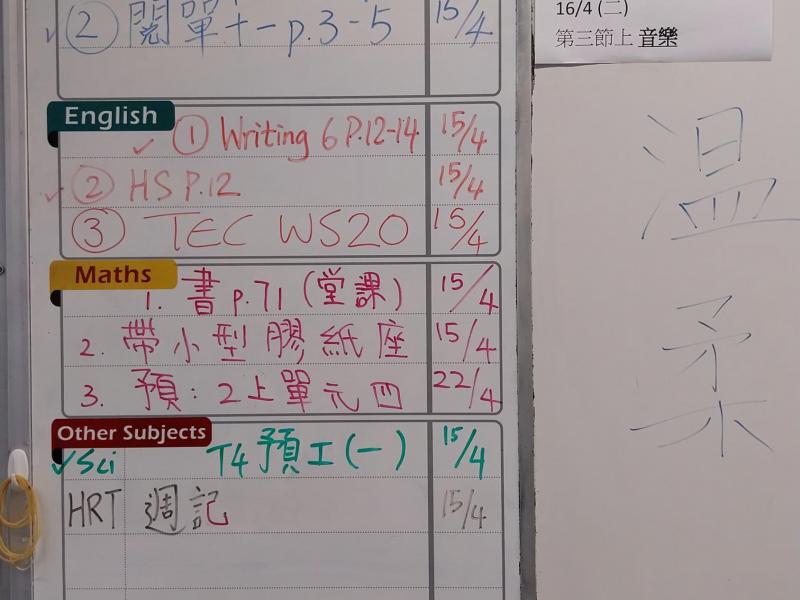 ② 閱單十一 p.3-5 15/4
16/4 (二)
第三節上 音樂
English
✓ ① Writing 6 P.12-14 15/4
✓ ② HS P.12 15/4
③ TEC WS20 15/4
Maths
1. 書 p.71 (堂課) 15/4
2. 帶小型膠紙座 15/4
3. 預: 2上單元四 22/4
Other Subjects
✓ Sci T4 預工(一) 15/4
HRT 週記 15/4
溫柔